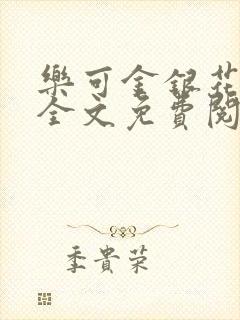 樂可金銀花
全文免費閱
季貴荣